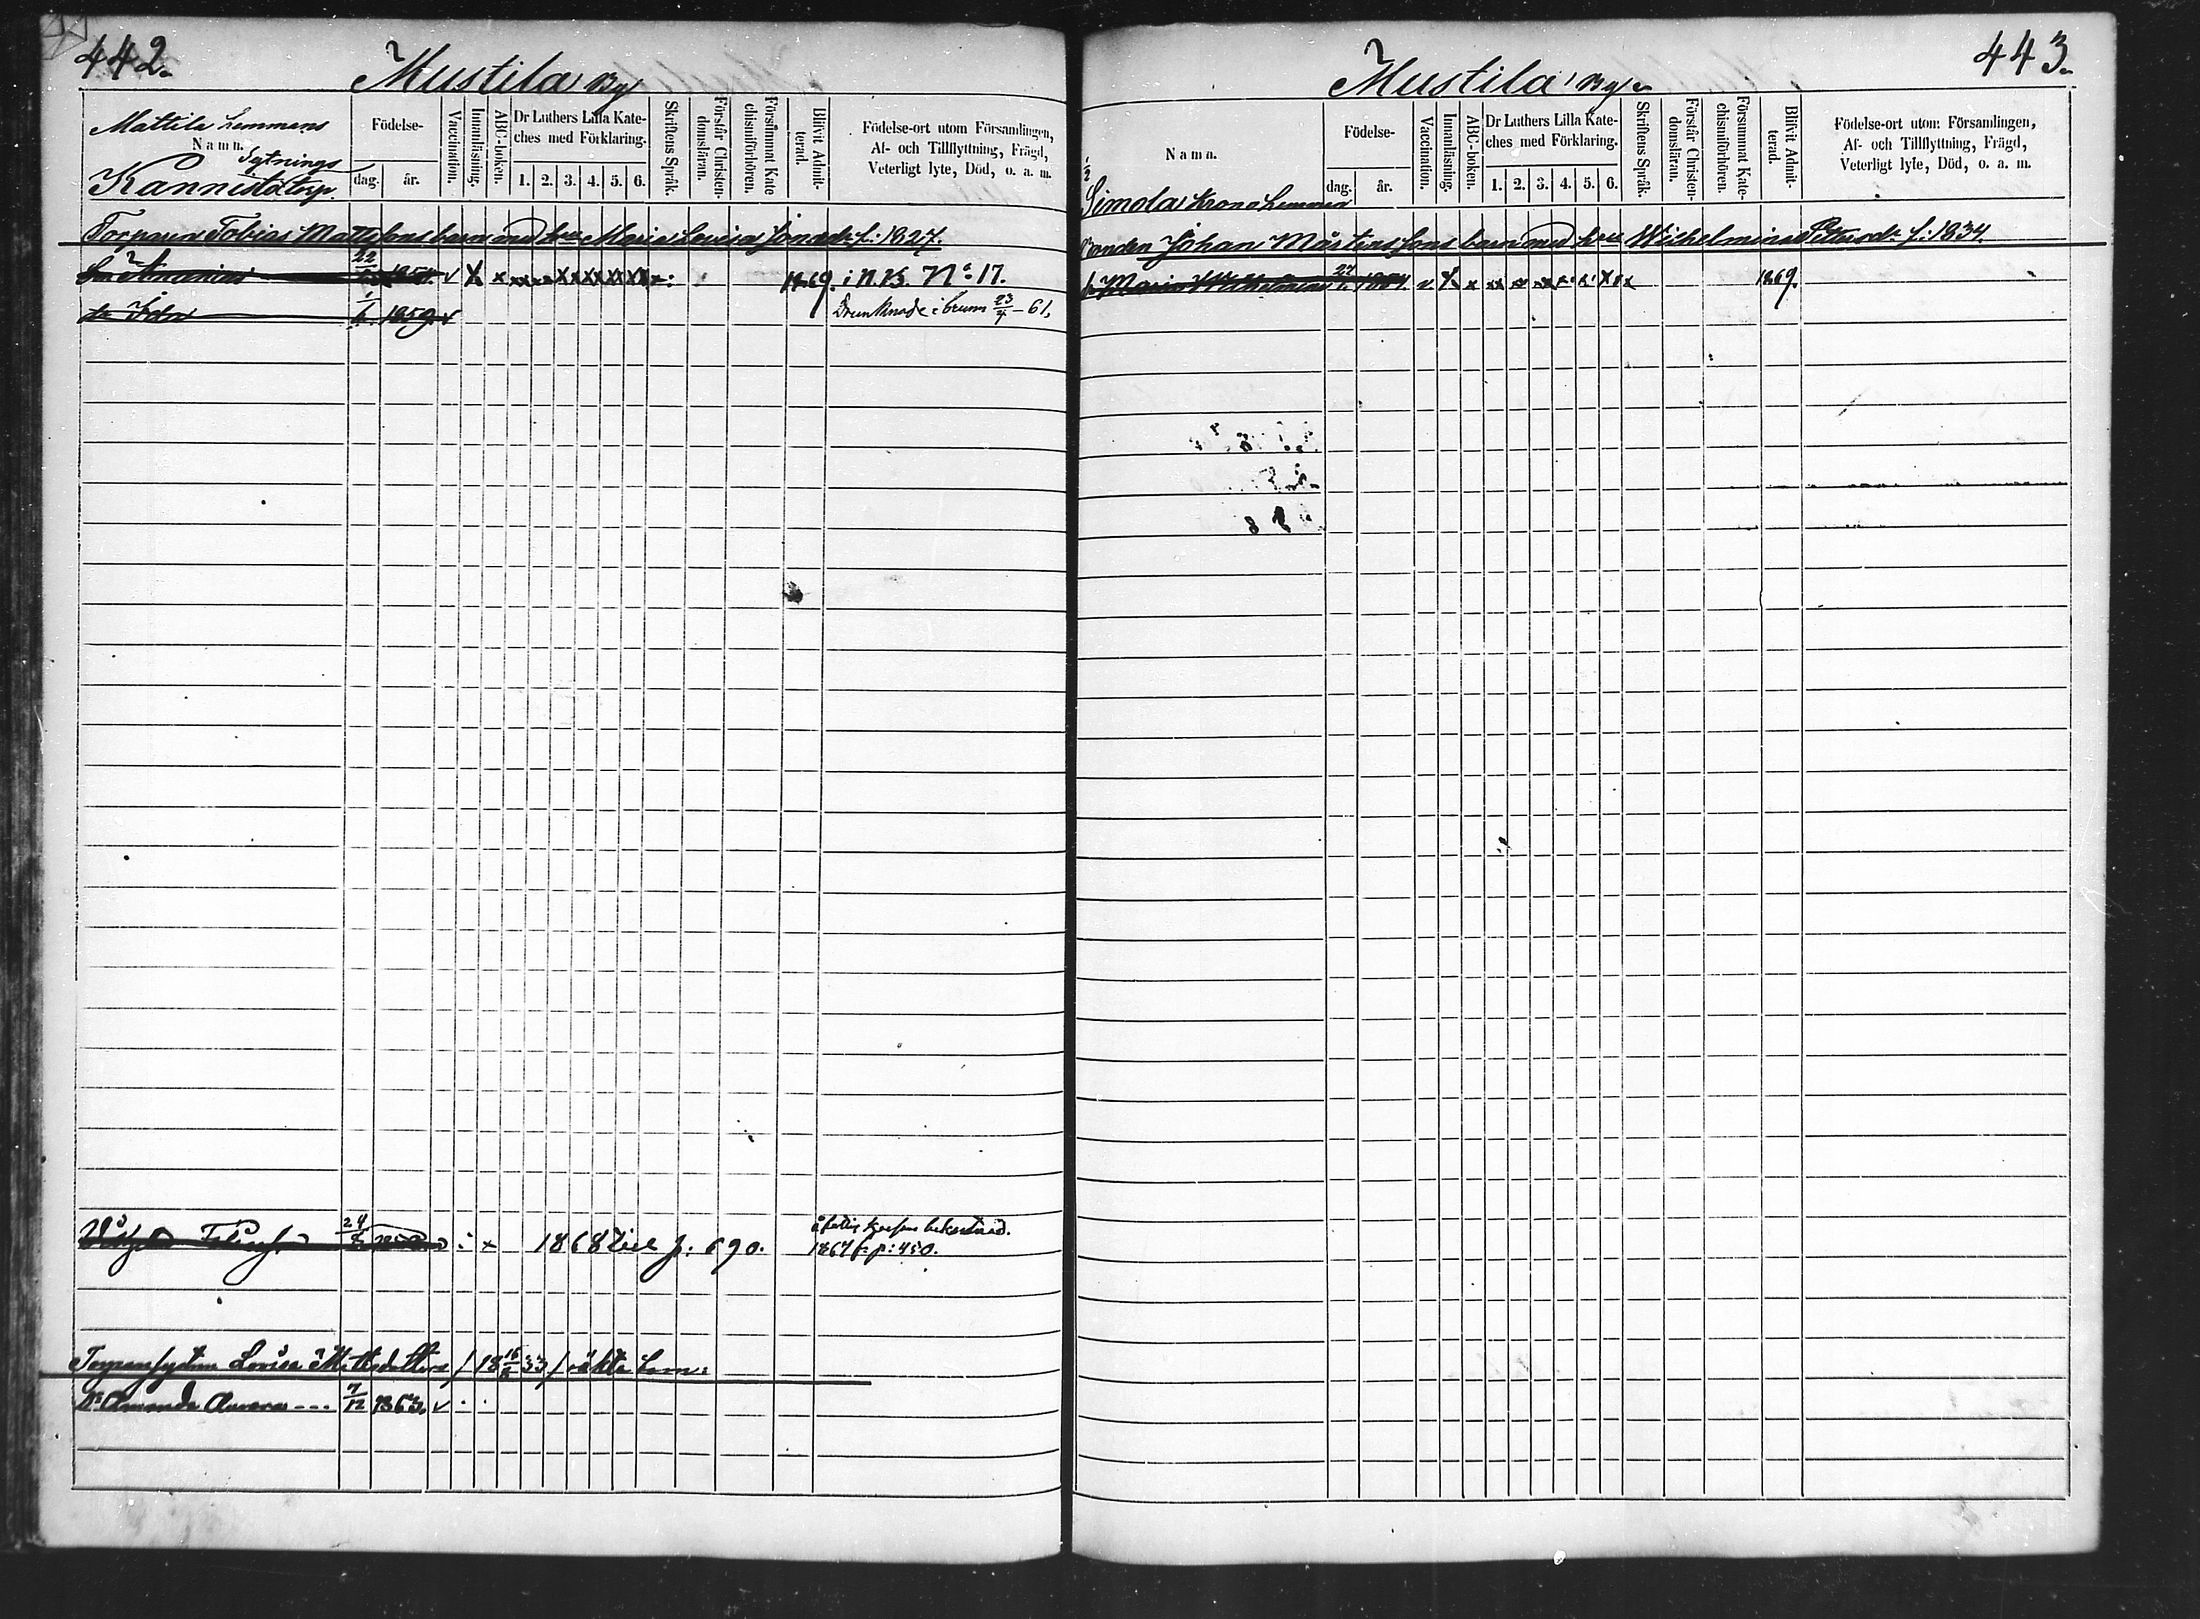 442.
Mustila By
Mattila hemmans
Namn.
Sytnings
Kannisto torp.
Födelse-
dag. år.
Vaccination.
Innanläsning.
ABC-boken.
Dr Luthers Lilla Kate-
ches med Förklaring.
1. 2. 3. 4. 5. 6.
Skriftens Språk.
Förstår Christen-
domsläran.
Försummat Kate-
chismiförhören.
Blifvit Admit-
terad.
Födelse-ort utom Församlingen,
Af- och Tillflyttning, Frägd,
Veterligt lyte, Död, o. a. m.
Torparen Tobias Mattssons barn med hu Maria Lovisa Jonasdr f: 1827.
Sn Ananias 22 v x x 1869. i N.B. No 17.
dr Ida 1859. v Drunknade i brunn 23/7 - 61.
24 x 1868 till p: 690.
1867 fr p: 450.
Lovisa Mattsdotters / 18 16/8 33 / oäkta barn:
Dr Amanda Aurora --- 7/12 1863. v
443.
Mustila By
Namn.
1/2
Simola Krono hemman
Födelse-
dag. år.
Vaccination.
Innanläsning.
ABC-boken.
Dr Luthers Lilla Kate-
ches med Förklaring.
1. 2. 3. 4. 5. 6.
Skriftens Språk.
Förstår Christen-
domsläran.
Försummat Kate-
chismiförhören.
Blifvit Admit-
terad.
Födelse-ort utom Församlingen,
Af- och Tillflyttning, Frägd,
Veterligt lyte, Död, o. a. m.
Bonden Johan Mårtenssons barn med hu Wilhelmina Petersdr f: 1834.
dr Maria Wilhelmina 1854. v x x 1869.